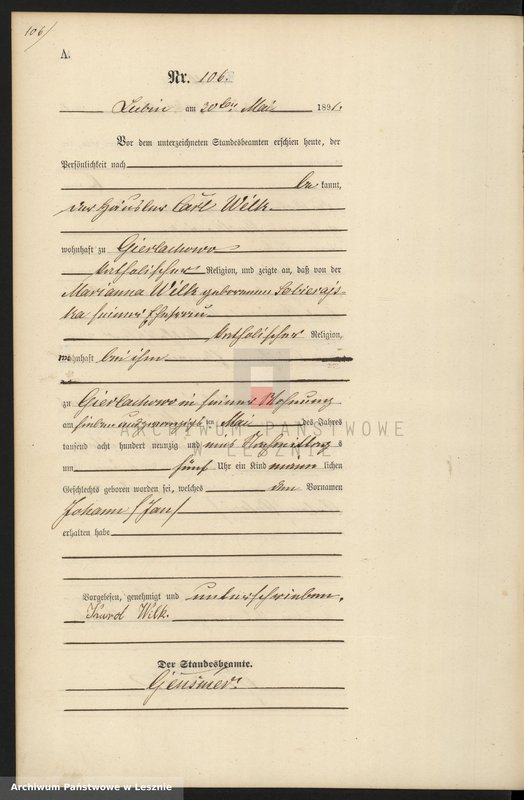 106/
A.
Nr. 106.
Lubin am 30ten Mai 1891.
Vor dem unterzeichneten Standesbeamten erschien heute, der
Persönlichkeit nach
be kannt,
der Häusler Carl Wilk.
wohnhaft zu Gierlachowo
katholischer Religion, und zeigte an, daß von der
Marianna Wilk geborenen Sobierajs-
ka seiner Ehefrau
katholischer Religion,
wohnhaft bei ihm
zu Gierlachowo in seiner Wohnung
am sieben und zwanzigsten Mai des Jahres
tausend acht hundert neunzig und eins Nachmittag s
um fünf Uhr ein Kind männ lichen
Geschlechts geboren worden sei, welches den Vornamen
Johann (Jan)
erhalten habe
Vorgelesen, genehmigt und unterschrieben.
Karol Wilk.
Der Standesbeamte.
ARCHIWUM PAŃSTWOWE
W LESZNIE
Archiwum Państwowe w Lesznie